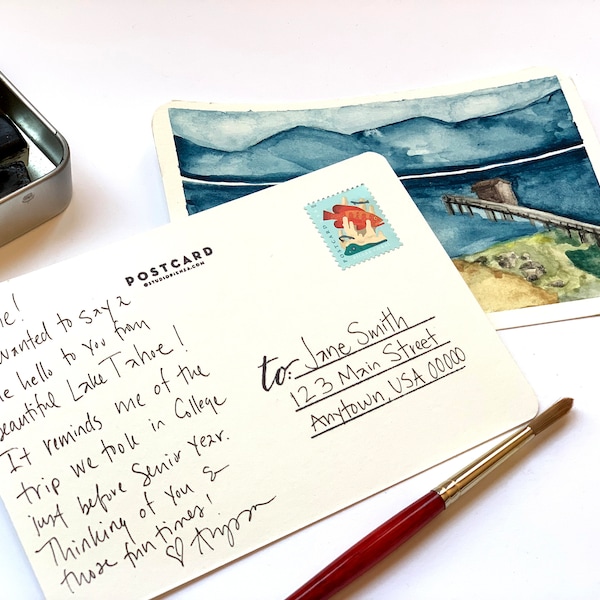 POSTCARD
@STUDIORISHSA.COM
wanted to say a
hello to you from
beautiful Lake Tahoe!
It reminds me of the
trip we took in College
just before Senior Year.
Thinking of You &
those fun times!
to: Jane Smith
123 Main Street
Anytown, USA 00000